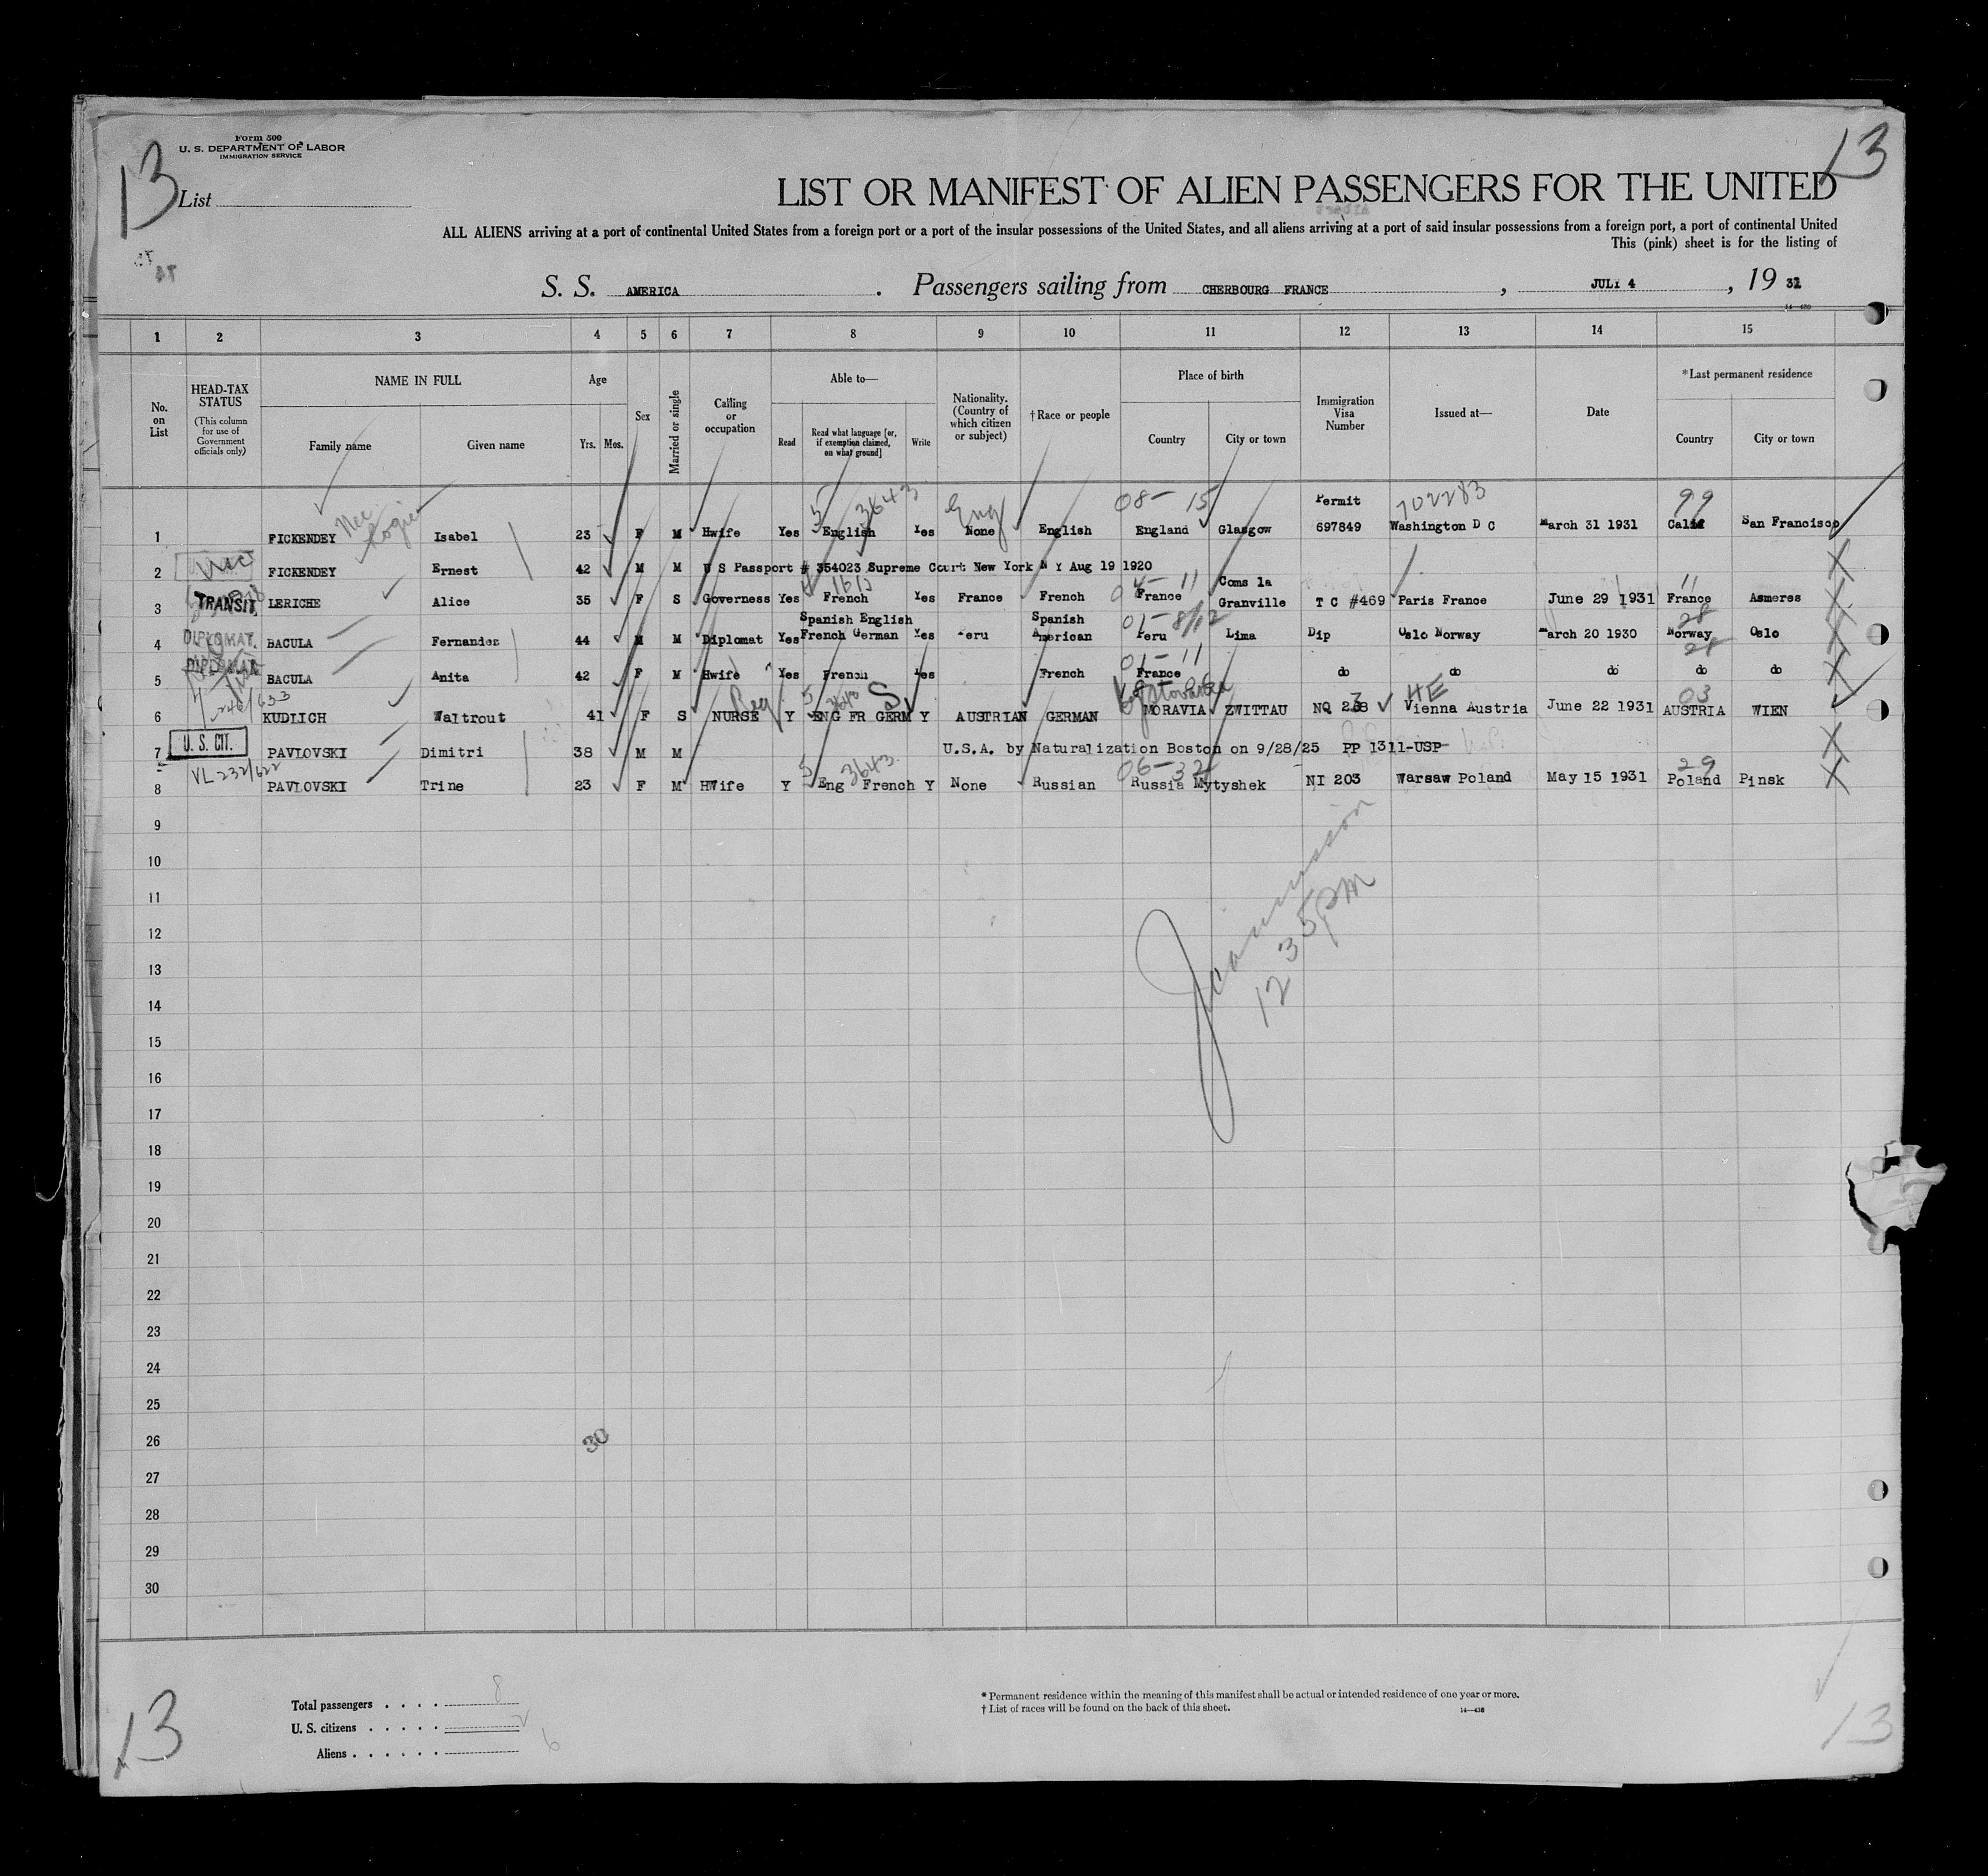 13
Form 500
U. S. DEPARTMENT OF LABOR
IMMIGRATION SERVICE
List
13
LIST OR MANIFEST OF ALIEN PASSENGERS FOR THE UNITED
ALL ALIENS arriving at a port of continental United States from a foreign port or a port of the insular possessions of the United States, and all aliens arriving at a port of said insular possessions from a foreign port, a port of continental United
This (pink) sheet is for the listing of
S. S. AMERICA . Passengers sailing from CHERBOURG FRANCE , JULY 4 , 19 31
1 2 3 4 5 6 7 8 9 10 11 12 13 14 15
No. on List
HEAD-TAX STATUS (This column for use of Government officials only)
NAME IN FULL
Family name Given name
Age
Yrs. Mos.
Sex
Married or single
Calling or occupation
Able to—
Read Read what language [or, if exemption claimed, on what ground] Write
Nationality. (Country of which citizen or subject)
†Race or people
Place of birth
Country City or town
Immigration Visa Number
Issued at—
Date
*Last permanent residence
Country City or town
5 3643 Eng 08-15 Permit 702283 99
1 FICKENDEY Nee Isabel 23 F M Hwife Yes English Yes None English England Glasgow 697849 Washington D C March 31 1931 Calif San Francisco
2 FICKENDEY Ernest 42 M M U S Passport # 354023 Supreme Court New York N Y Aug 19 1920
Coms la
3 TRANSIT LERICHE Alice 35 F S Governess Yes French Yes France French France Granville T C #469 Paris France June 29 1931 France Asmeres
Spanish English Spanish 28
4 DIPLOMAT. BACULA Fernandes 44 M M Diplomat Yes French German Yes Peru American Peru Lima Dip Oslo Norway March 20 1930 Norway Oslo
01-11 28
5 DIPLOMAT BACULA Anita 42 F M Hwife Yes French Yes French France do do do do do
246/633 5 S HE 03
6 KUDLICH Waltrout 41 F S NURSE Y ENG FR GERM Y AUSTRIAN GERMAN MORAVIA ZWITTAU NQ 238 Vienna Austria June 22 1931 AUSTRIA WIEN
7 U. S. CIT. PAVLOVSKI Dimitri 38 M M U.S.A. by Naturalization Boston on 9/28/25 PP 1311-USP
VL 232/622 5 3643 06-32 29
8 PAVLOVSKI Trine 23 F M HWife Y Eng French Y None Russian Russia Mytyshek NI 203 Warsaw Poland May 15 1931 Poland Pinsk
9
10
11
12
12 35 PM
13
14
15
16
17
18
19
20
21
22
23
24
25
26 30
27
28
29
30
13
Total passengers . . . . 8
U. S. citizens . . . . . 2
Aliens . . . . . . 6
* Permanent residence within the meaning of this manifest shall be actual or intended residence of one year or more.
† List of races will be found on the back of this sheet.
14—438
13